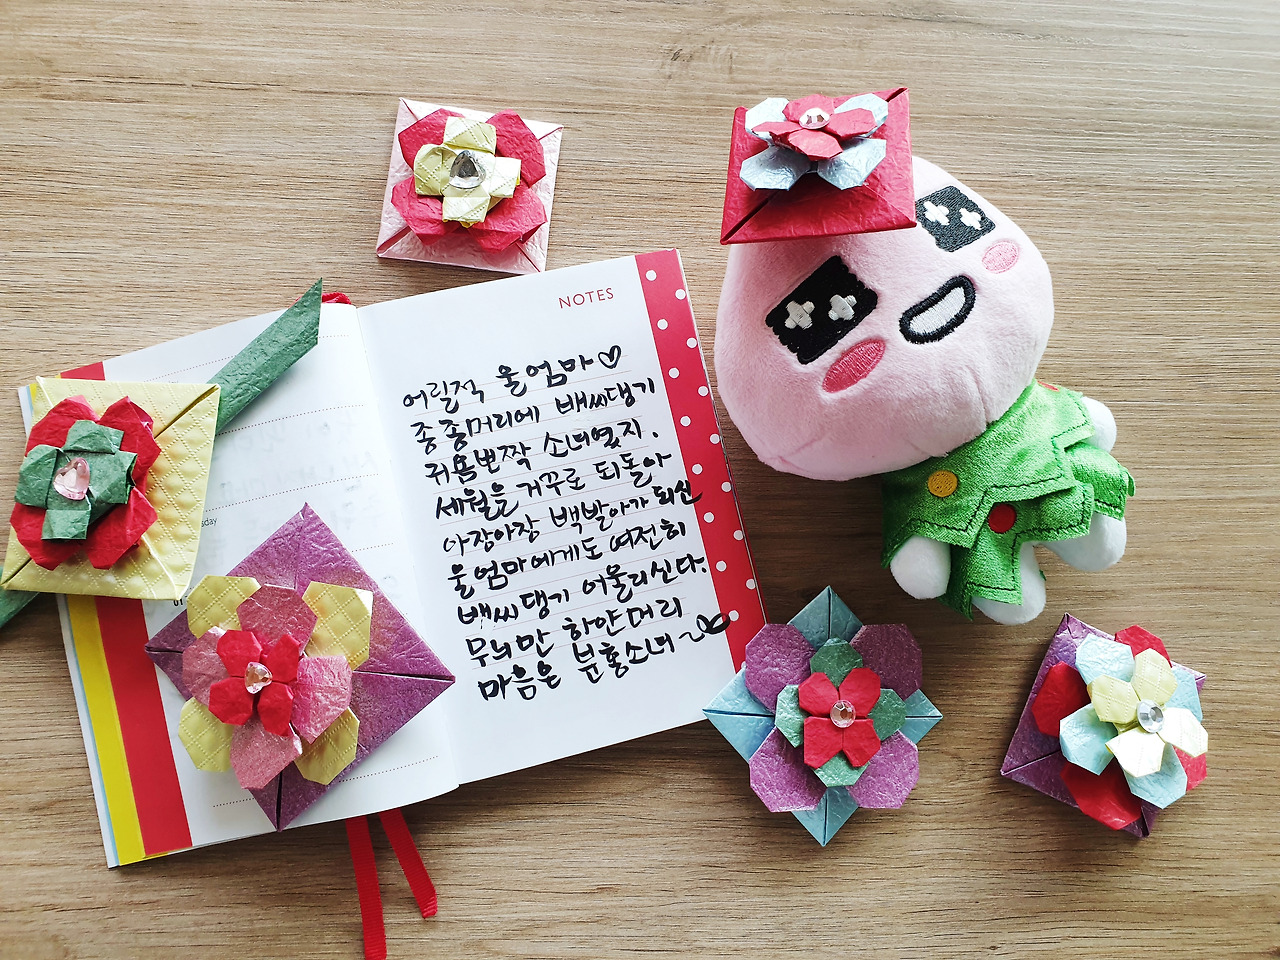 NOTES
어릴적 울엄마♡
종종머리에 배씨댕기
귀욤뽀짝 소녀였지.
세월을 거꾸로 되돌아
아장아장 백발아가 되신
울엄마에게도 여전히
배씨댕기 어울리신다.
무늬만 하얀머리
마음은 분홍소녀~
sday
01